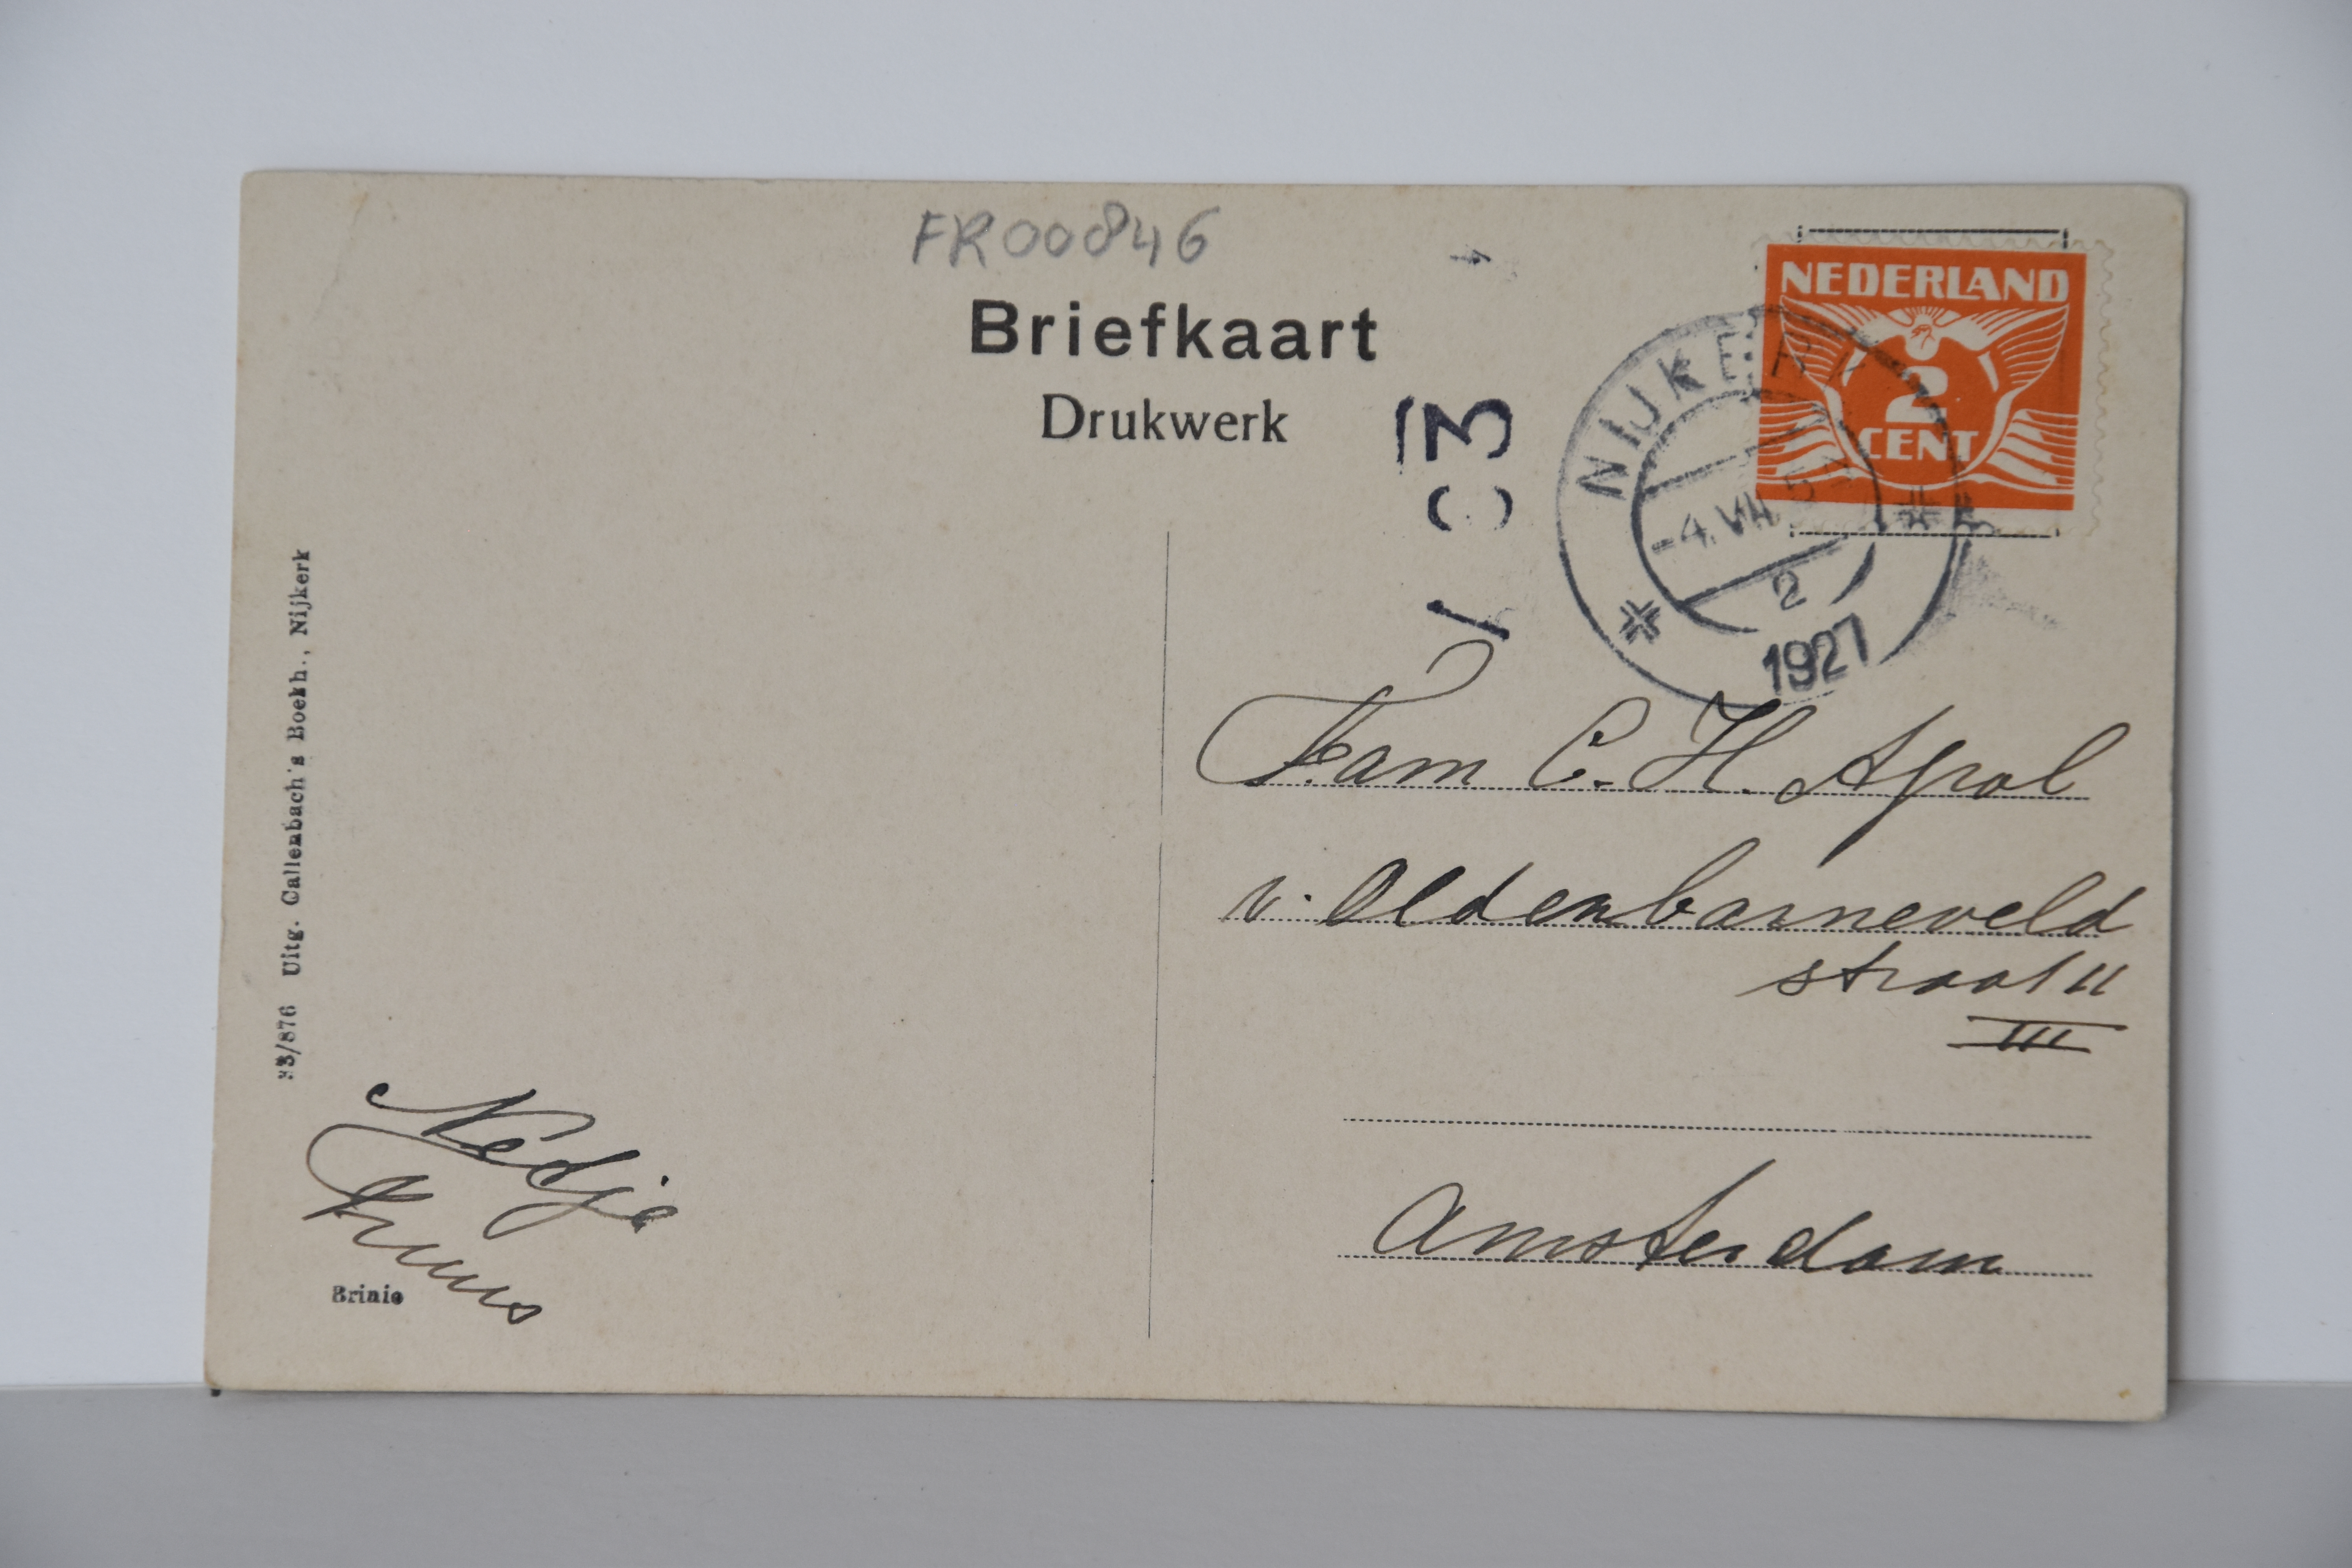 FR00846
Briefkaart
Drukwerk
NEDERLAND
2
CENT
NIJKERK
-4.VII
2
1927
Fam C. H. Apol
v. Oldenbarneveld
straat 11
III
Amsterdam
Uitg. Callenbach's Boekh., Nijkerk
Nedja
Brinio